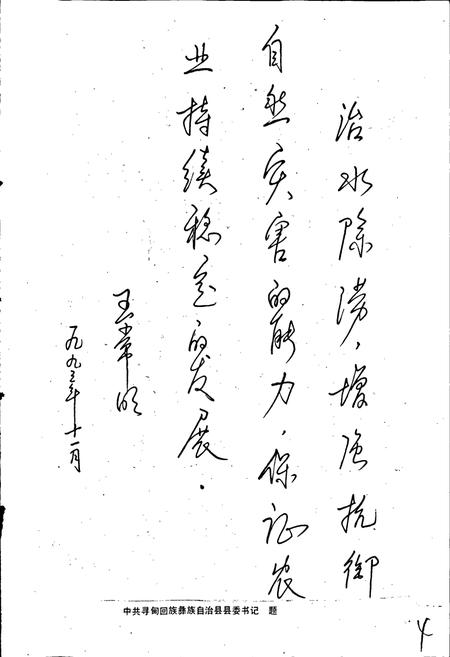 治水除涝，增强抗御
自然灾害的能力，保证农
业持续稳定的发展。
王常明
一九九三年十一月
中共寻甸回族彝族自治县县委书记 题
4